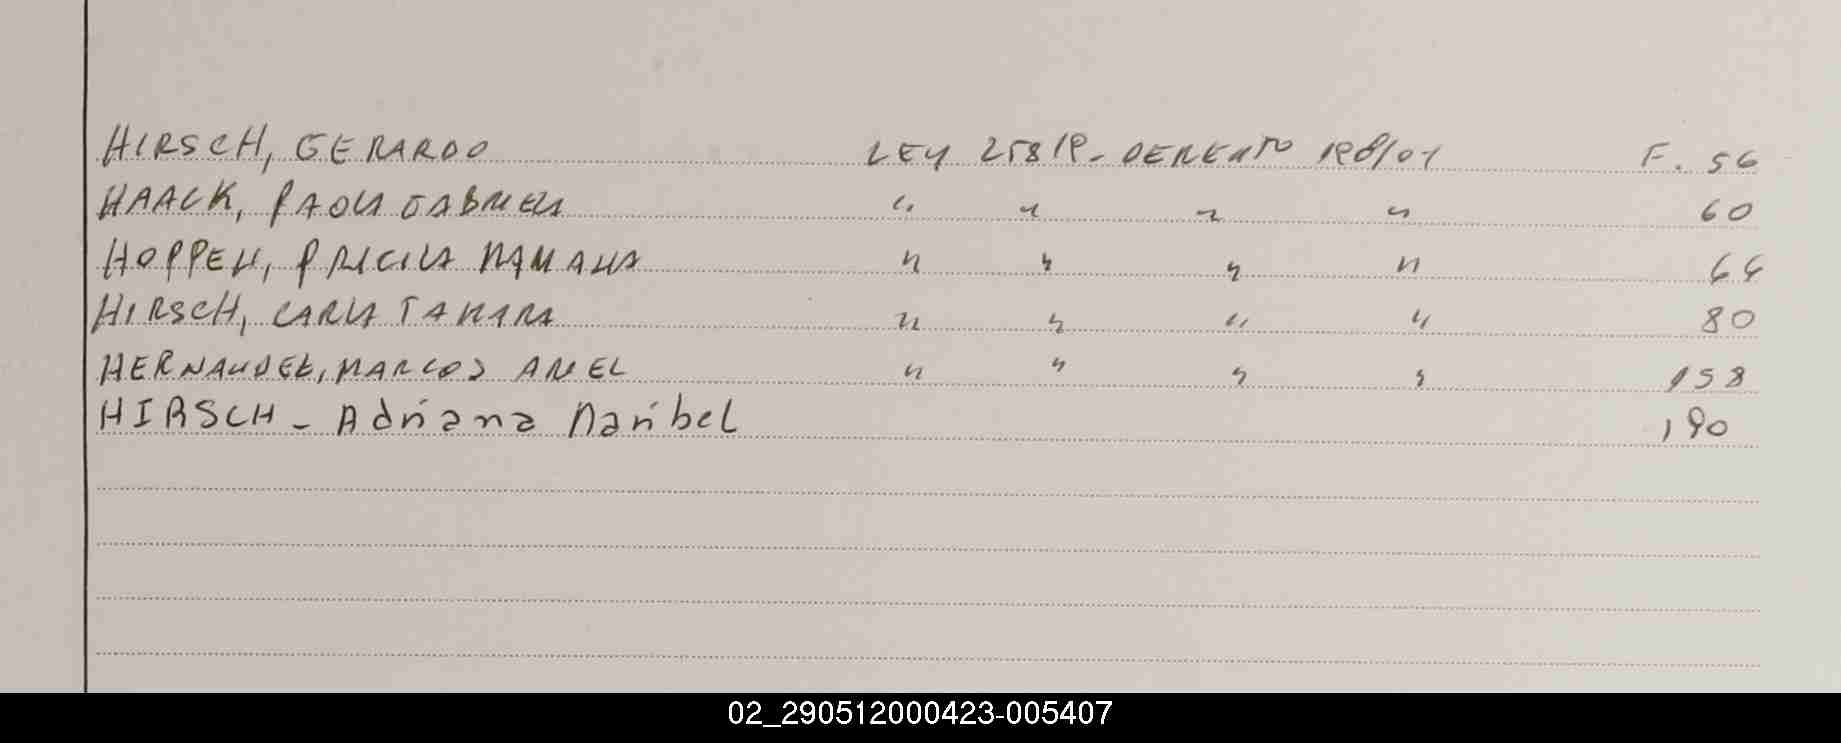 HIRSCH, GERARDO LEY 25819 - DECRETO 198/01 F. 56
HAACK, PAOLA GABRIELA " " " " 60
HOPPEN, PRICILA " " " " 64
HIRSCH, CARLA TAMARA " " " " 80
HERNANDEZ, MARCOS ARIEL " " " " 158
HIRSCH - Adriana Maribel 190
02_290512000423-005407